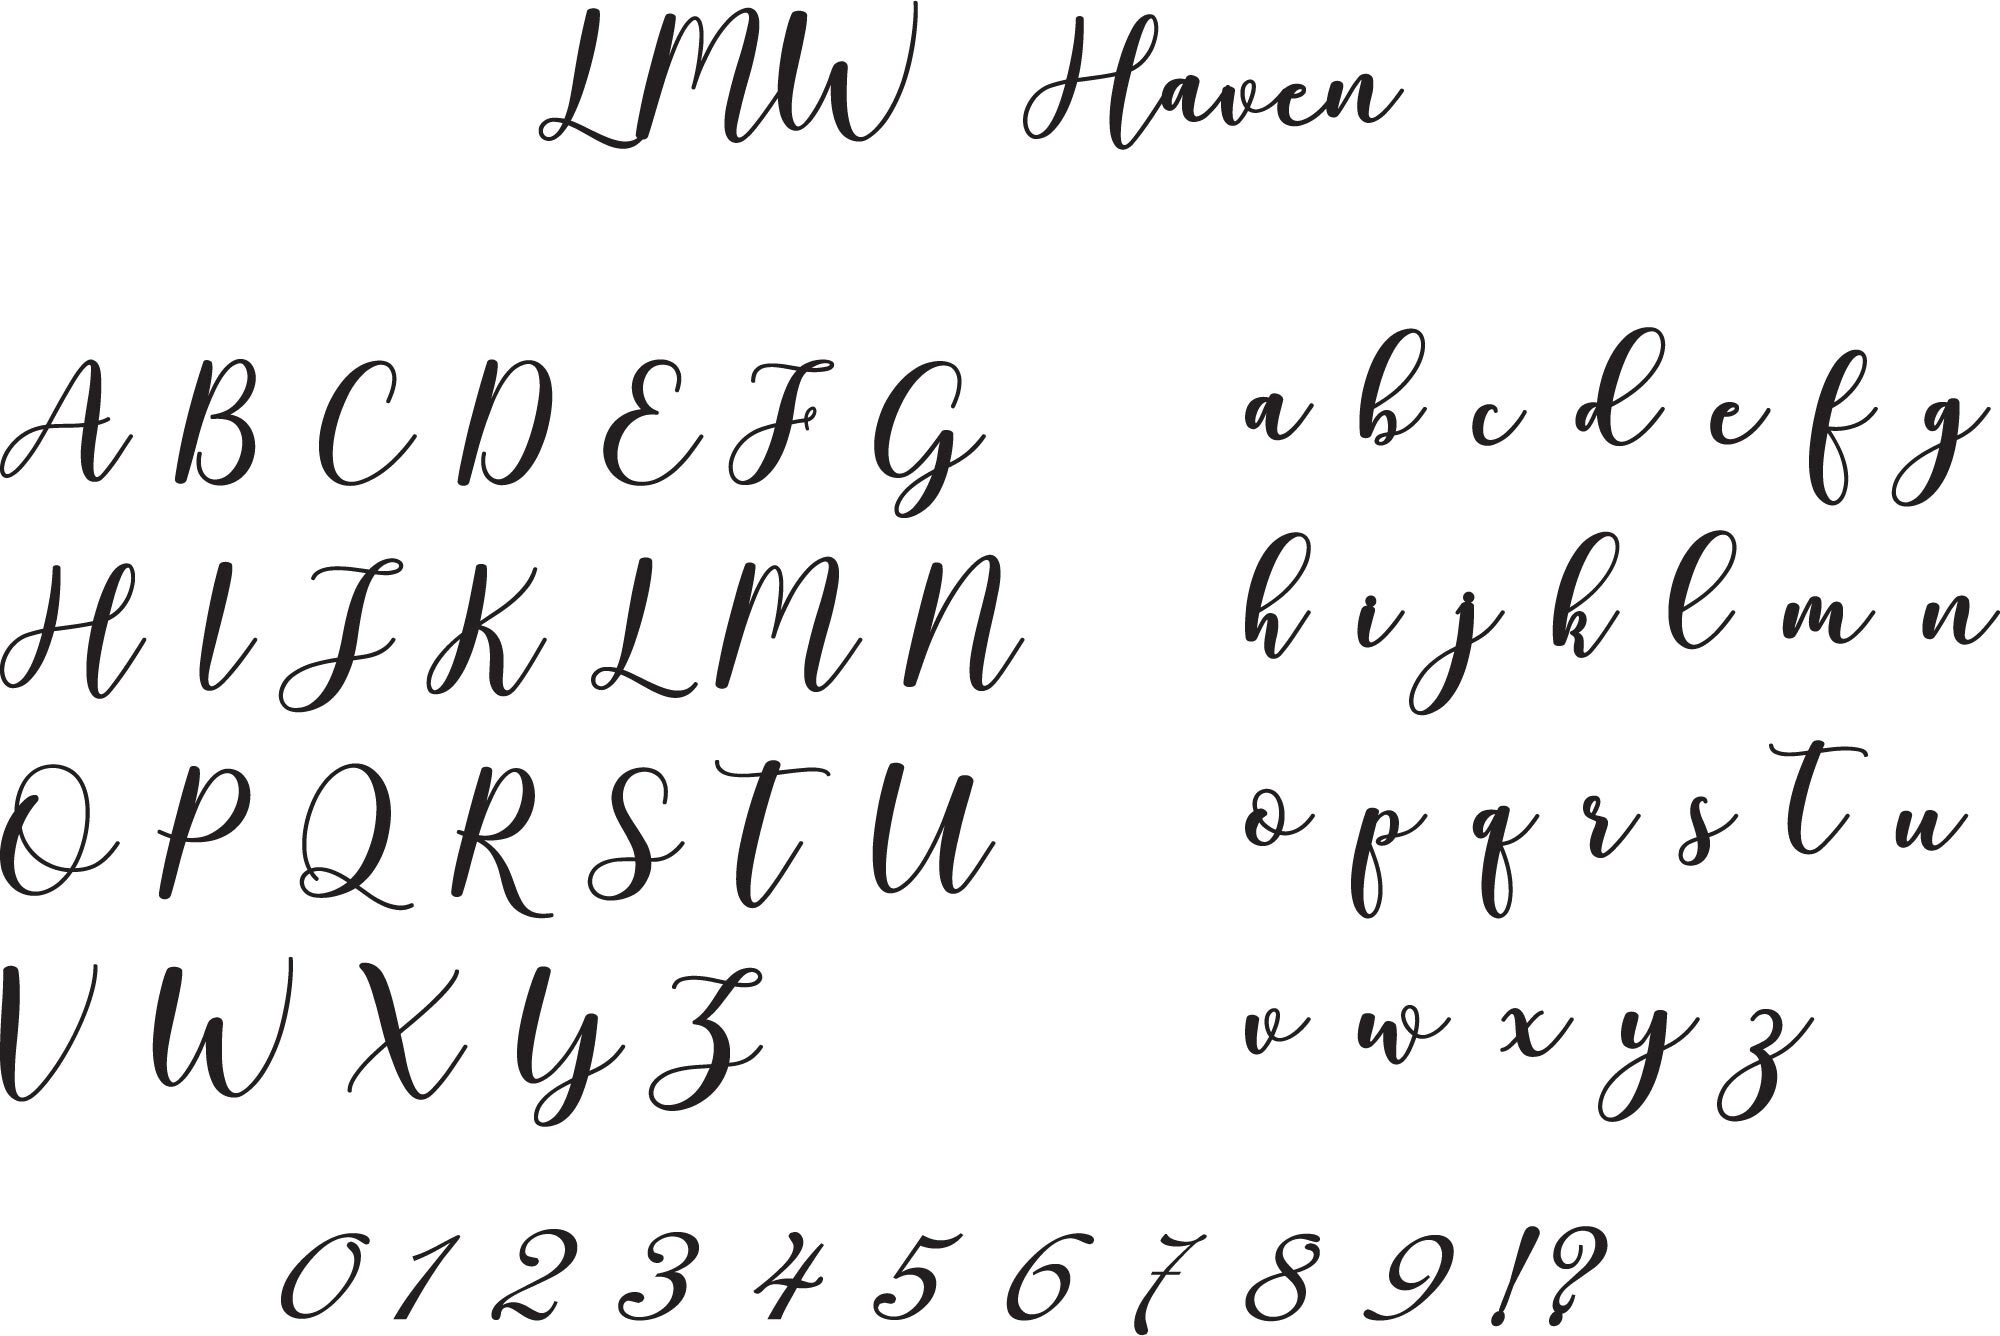 LMW Haven
A B C D E F G a b c d e f g
H I J K L M N h i j k l m n
O P Q R S T U o p q r s t u
V W X Y Z v w x y z
0 1 2 3 4 5 6 7 8 9 ! ?